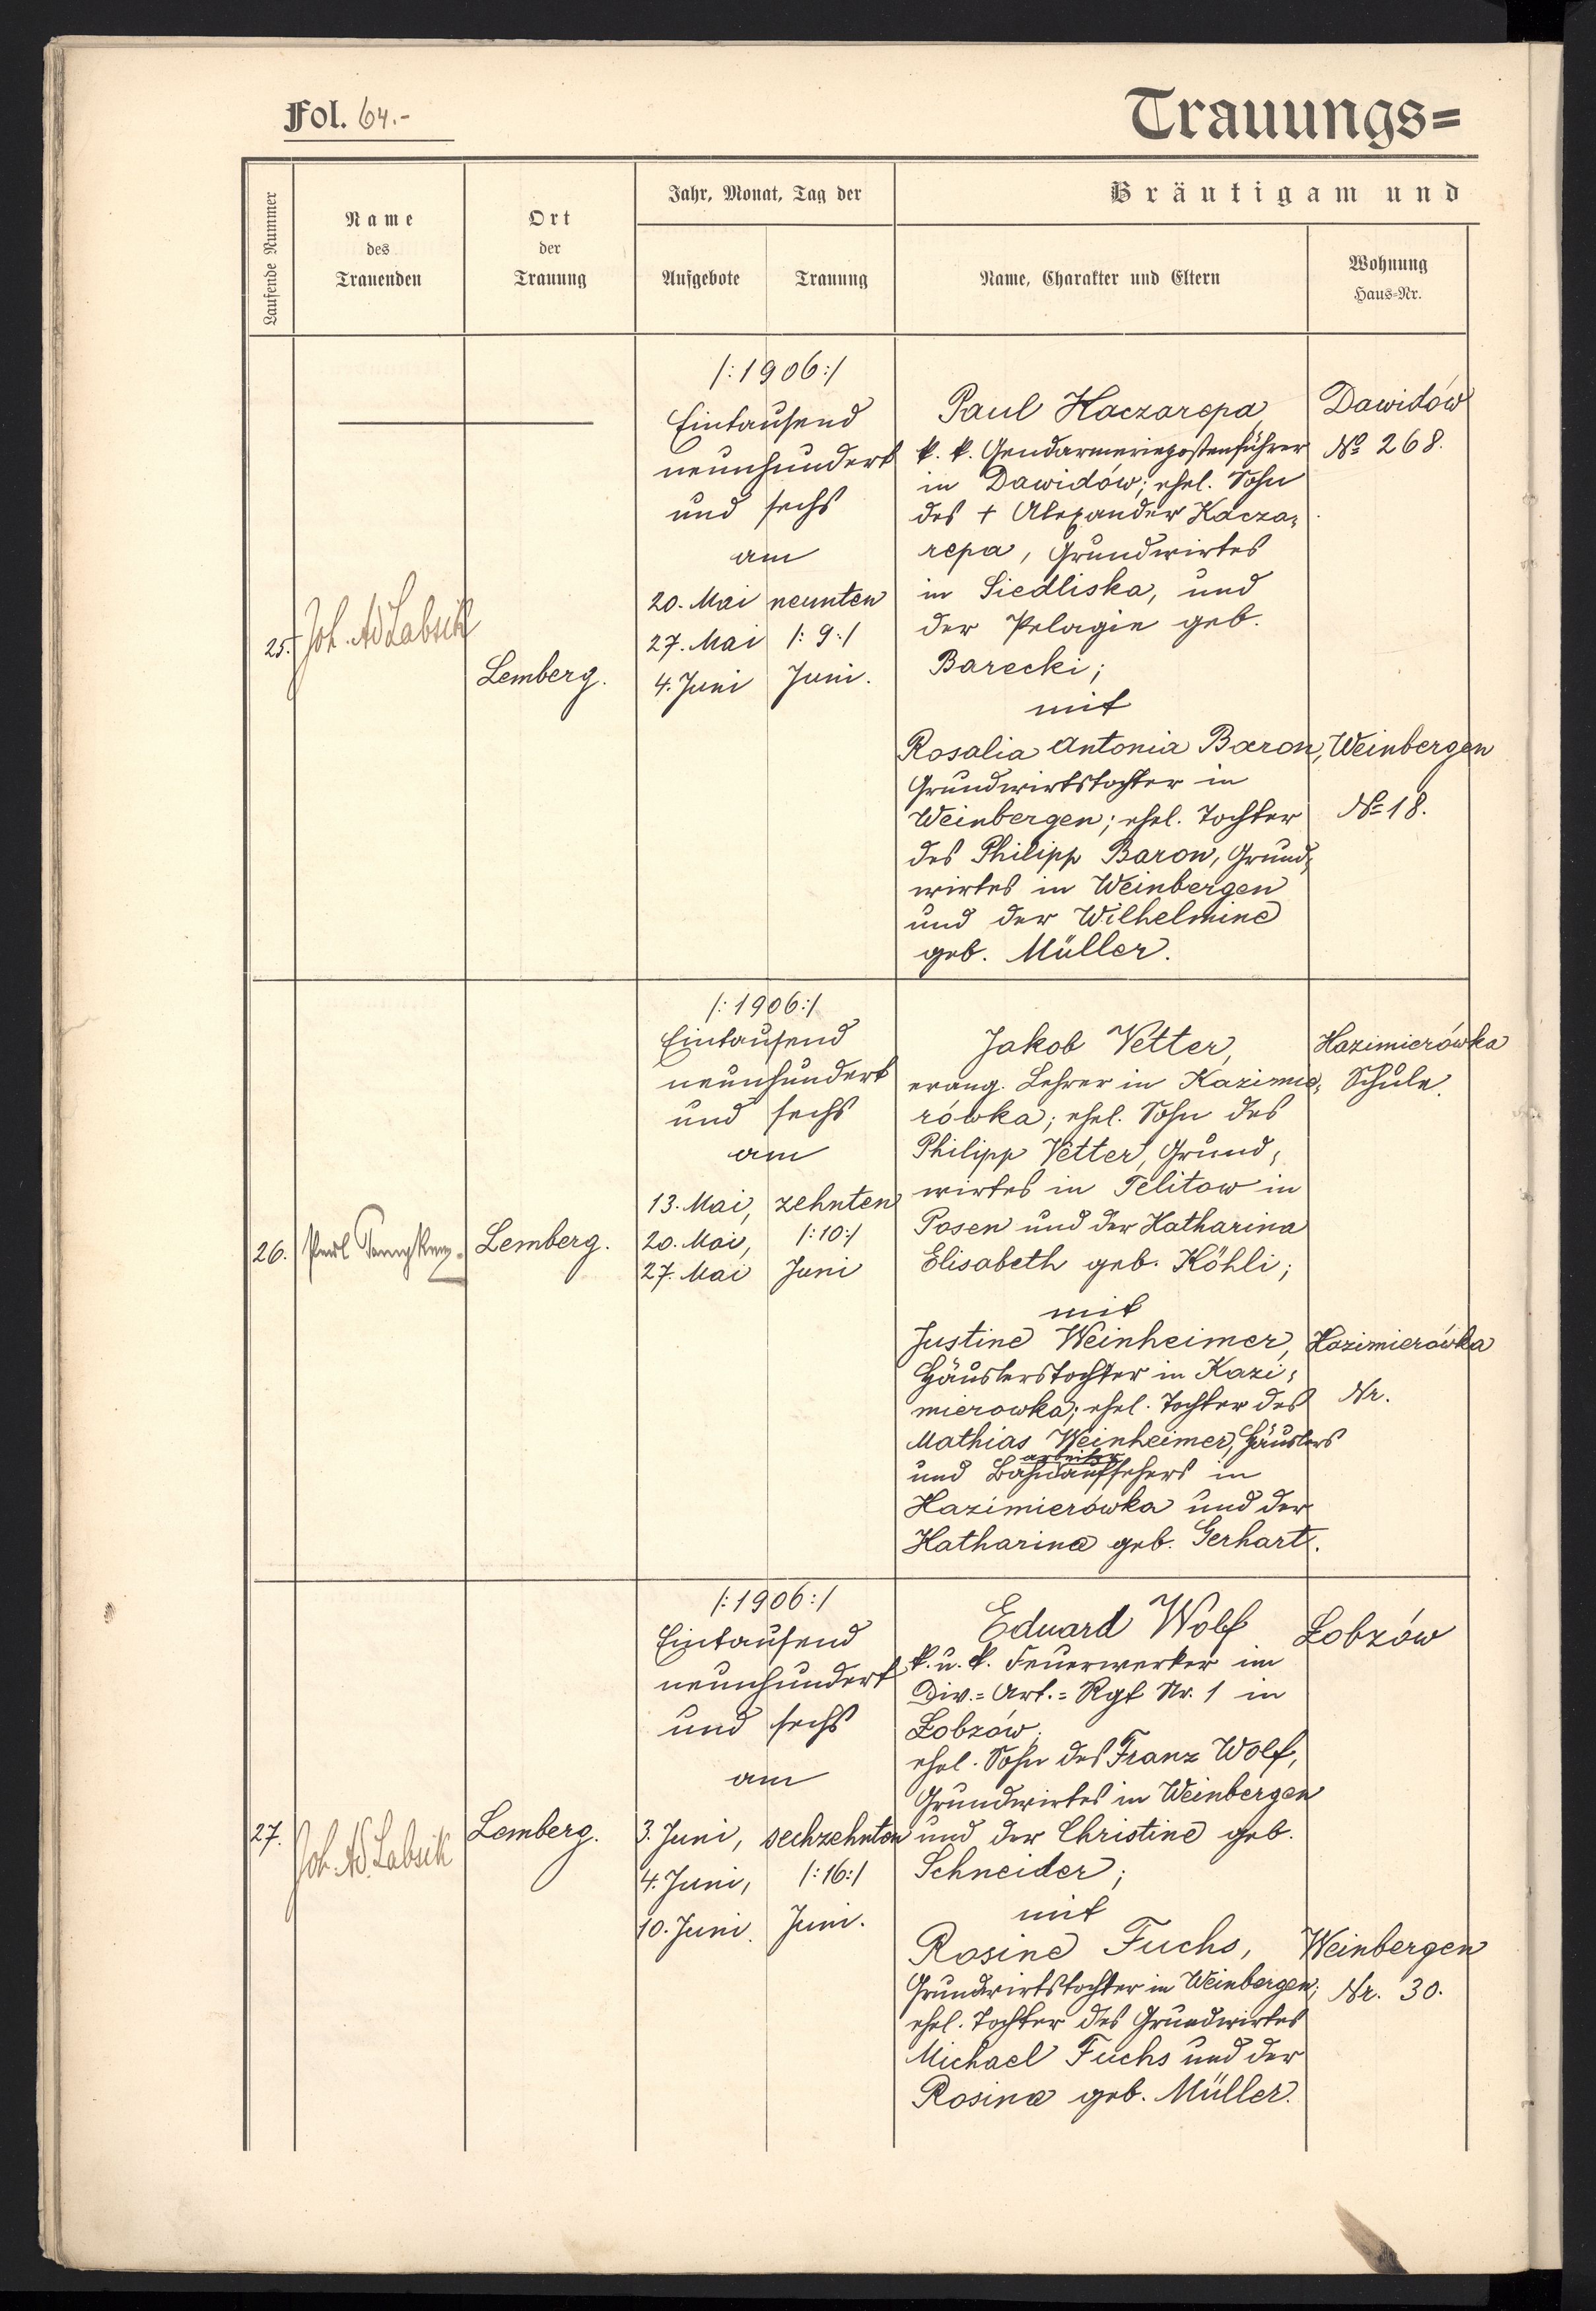 Fol. 64.-
Trauungs=
Laufende Nummer
Name
des
Trauenden
Ort
der
Trauung
Jahr, Monat, Tag der
Aufgebote
Trauung
Bräutigam und
Name, Charakter und Eltern
Wohnung
Haus-Nr.
25.
Joh. Ad Labsik
Lemberg.
/:1906:/
Eintausend
neunhundert
und sechs
am
20. Mai neunten
27. Mai /:9:/
4. Juni Juni.
Paul Kaczarepa
k. k. Gendarmeriepostenführer
in Dawidów; ehel. Sohn
des † Alexander Kacza=
repa, Grundwirtes
in Siedliska, und
der Pelagie geb.
Barecki;
mit
Rosalia Antonia Baron,
Grundwirtstochter in
Weinbergen; ehel. Tochter
des Philipp Baron, Grund=
wirtes in Weinbergen
und der Wilhelmine
geb. Müller.
Dawidów
No 268.
Weinbergen
No 18.
26.
Paul
Lemberg.
/:1906:/
Eintausend
neunhundert
und sechs
am
13. Mai, zehnten
20. Mai, /:10:/
27. Mai Juni
Jakob Vetter,
evang. Lehrer in Kazimie=
rówka; ehel. Sohn des
Philipp Vetter, Grund=
wirtes in Telitow in
Posen und der Katharina
Elisabeth geb. Köhli;
mit
Justine Weinheimer,
Häuslerstochter in Kazi=
mierowka; ehel. Tochter des
Mathias Weinheimer, Häuslers
arbeiter
und Bahnaufsehers in
Kazimierówka und der
Katharina geb. Gerhart.
Kazimierówka
Schule.
Kazimierówka
Nr.
27.
Joh. Ad. Labsik
Lemberg.
/:1906:/
Eintausend
neunhundert
und sechs
am
3. Juni, sechzehnten
4. Juni, /:16:/
10. Juni. Juni.
Eduard Wolf
k. u. k. Feuerwerker im
Div.=Art.=Rgt Nr. 1 in
Łobzów;
ehel. Sohn des Franz Wolf,
Grundwirtes in Weinbergen
und der Christine geb.
Schneider;
mit
Rosine Fuchs,
Grundwirtstochter in Weinbergen;
ehel. Tochter des Grundwirtes
Michael Fuchs und der
Rosina geb. Müller.
Łobzów
Weinbergen
Nr. 30.